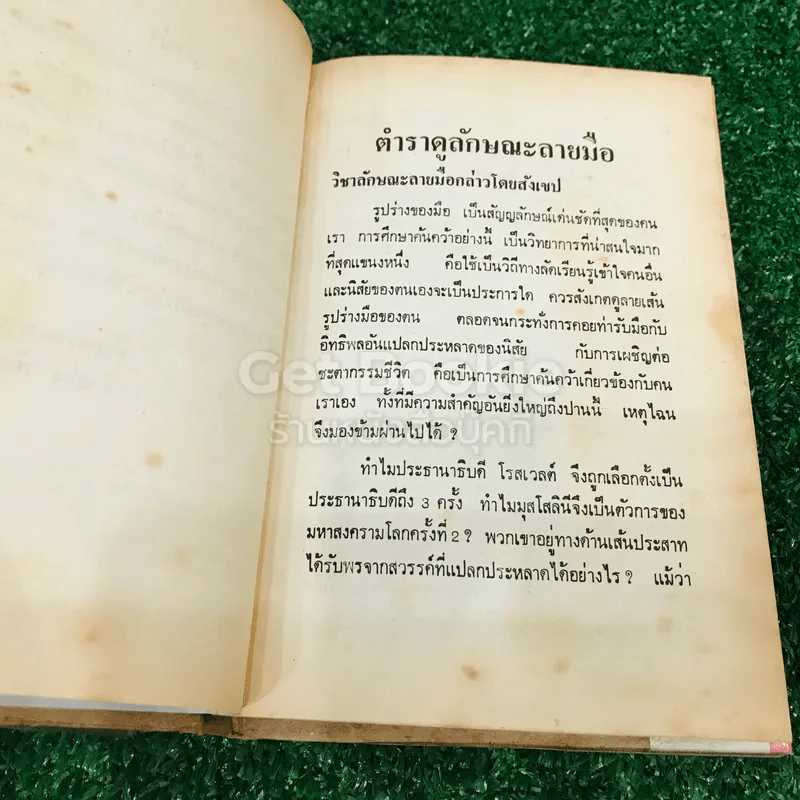 ตำราดูลักษณะลายมือ
วิชาลักษณะลายมือกล่าวโดยสังเขป
รูปร่างของมือ เป็นสัญญลักษณ์เด่นชัดที่สุดของคน
เรา การศึกษาค้นคว้าอย่างนี้ เป็นวิทยาการที่น่าสนใจมาก
ที่สุดแขนงหนึ่ง คือใช้เป็นวิถีทางลัดเรียนรู้เข้าใจคนอื่น
และนิสัยของตนเองจะเป็นประการใด ควรสังเกตดูลายเส้น
รูปร่างมือของตน ตลอดจนกระทั่งการคอยท่ารับมือกับ
อิทธิพลอันแปลกประหลาดของนิสัย กับการเผชิญต่อ
ชะตากรรมชีวิต คือเป็นการศึกษาค้นคว้าเกี่ยวข้องกับคน
เราเอง ทั้งที่มีความสำคัญอันยิ่งใหญ่ถึงปานนี้ เหตุไฉน
จึงมองข้ามผ่านไปได้ ?
ทำไมประธานาธิบดี โรสเวลต์ จึงถูกเลือกตั้งเป็น
ประธานาธิบดีถึง 3 ครั้ง ทำไมมุสโสลินีจึงเป็นตัวการของ
มหาสงครามโลกครั้งที่ 2 ? พวกเขาอยู่ทางด้านเส้นประสาท
ได้รับพรจากสวรรค์ที่แปลกประหลาดได้อย่างไร ? แม้ว่า
Get Bookie
ร้านหนังสือบุ๊คกี้